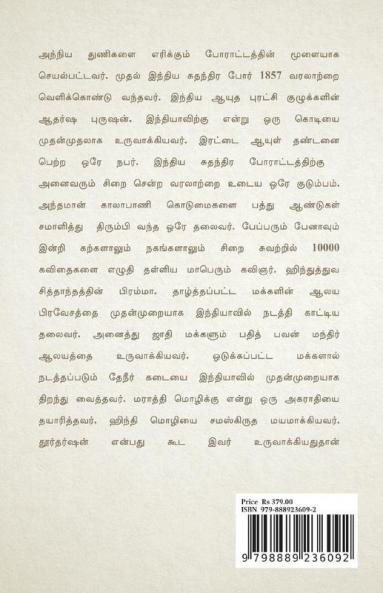 அந்நிய துணிகளை எரிக்கும் போராட்டத்தின் மூளையாக
செயல்பட்டவர். முதல் இந்திய சுதந்திர போர் 1857 வரலாற்றை
வெளிக்கொண்டு வந்தவர். இந்திய ஆயுத புரட்சி குழுக்களின்
ஆதர்ஷ புருஷன். இந்தியாவிற்கு என்று ஒரு கொடியை
முதன்முதலாக உருவாக்கியவர். இரட்டை ஆயுள் தண்டனை
பெற்ற ஒரே நபர். இந்திய சுதந்திர போராட்டத்திற்கு
அனைவரும் சிறை சென்ற வரலாற்றை உடைய ஒரே குடும்பம்.
அந்தமான் காலாபாணி கொடுமைகளை பத்து ஆண்டுகள்
சமாளித்து திரும்பி வந்த ஒரே தலைவர். பேப்பரும் பேனாவும்
இன்றி கற்களாலும் நகங்களாலும் சிறை சுவற்றில் 10000
கவிதைகளை எழுதி தள்ளிய மாபெரும் கவிஞர். ஹிந்துத்துவ
சித்தாந்தத்தின் பிரம்மா. தாழ்த்தப்பட்ட மக்களின் ஆலய
பிரவேசத்தை முதன்முறையாக இந்தியாவில் நடத்தி காட்டிய
தலைவர். அனைத்து ஜாதி மக்களும் பதித் பவன் மந்திர்
ஆலயத்தை உருவாக்கியவர். ஒடுக்கப்பட்ட மக்களால்
நடத்தப்படும் தேநீர் கடையை இந்தியாவில் முதன்முறையாக
திறந்து வைத்தவர். மராத்தி மொழிக்கு என்று ஒரு அகராதியை
தயாரித்தவர். ஹிந்தி மொழியை சமஸ்கிருத மயமாக்கியவர்.
தூர்தர்ஷன் என்பது கூட இவர் உருவாக்கியதுதான்
Price Rs 379.00
ISBN 979-888923609-2
9 798889 236092